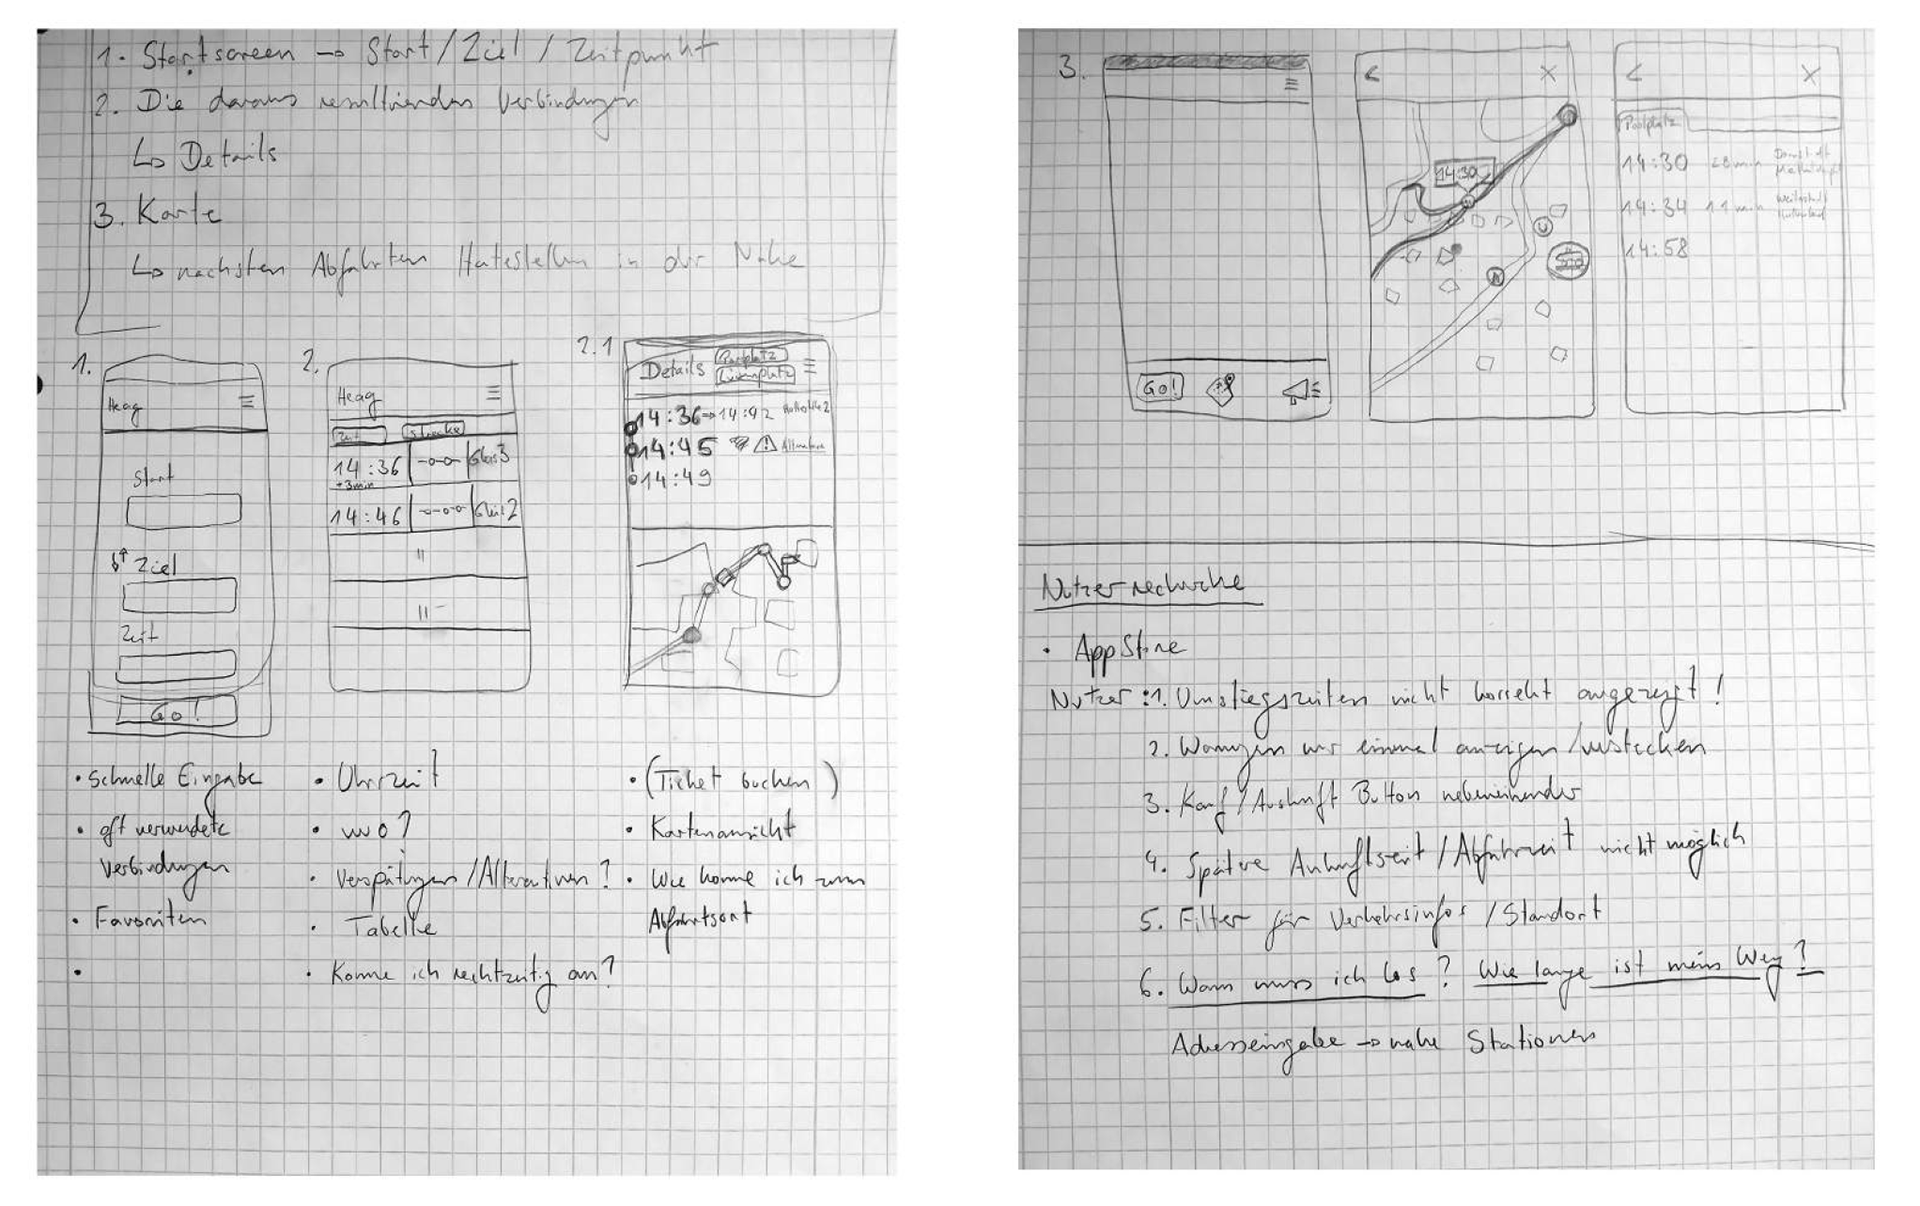 1. Startscreen → Start / Ziel / Zeitpunkt
2. Die daraus resultierenden Verbindungen
↳ Details
3. Karte
↳ nächsten Abfahrten Haltestellen in der Nähe
1.
Heag
Start
↓↑ Ziel
Zeit
Go!
2.
Heag
Zeit Strecke
14:36 Gleis 3
+3min
14:46 Gleis 2
"
"
2.1
Details
Luisenplatz
14:36 → 14:42
14:45
14:49
• schnelle Eingabe
• oft verwendete
Verbindungen
• Favoriten
•
• Uhrzeit
• wo?
• Verspätungen / Alternativen?
• Tabelle
• Komme ich rechtzeitig an?
• (Ticket buchen)
• Kartenansicht
• Wie komme ich zum
Abfahrtsort
3.
Go!
< X
14:30
H
< X
14:30 min
14:34 11 min
14:58
Nutzerrecherche
• AppStore
Nutzer: 1. Umstiegszeiten nicht korrekt angezeigt!
2. Warnungen nur einmal anzeigen / verstecken
3. Kauf / Auskunft Button nebeneinander
4. Spätere Ankunftszeit / Abfahrtszeit nicht möglich
5. Filter für Verkehrsinfos / Standort
6. Wann muss ich los? Wie lange ist mein Weg?
Adresseingabe → nahe Stationen